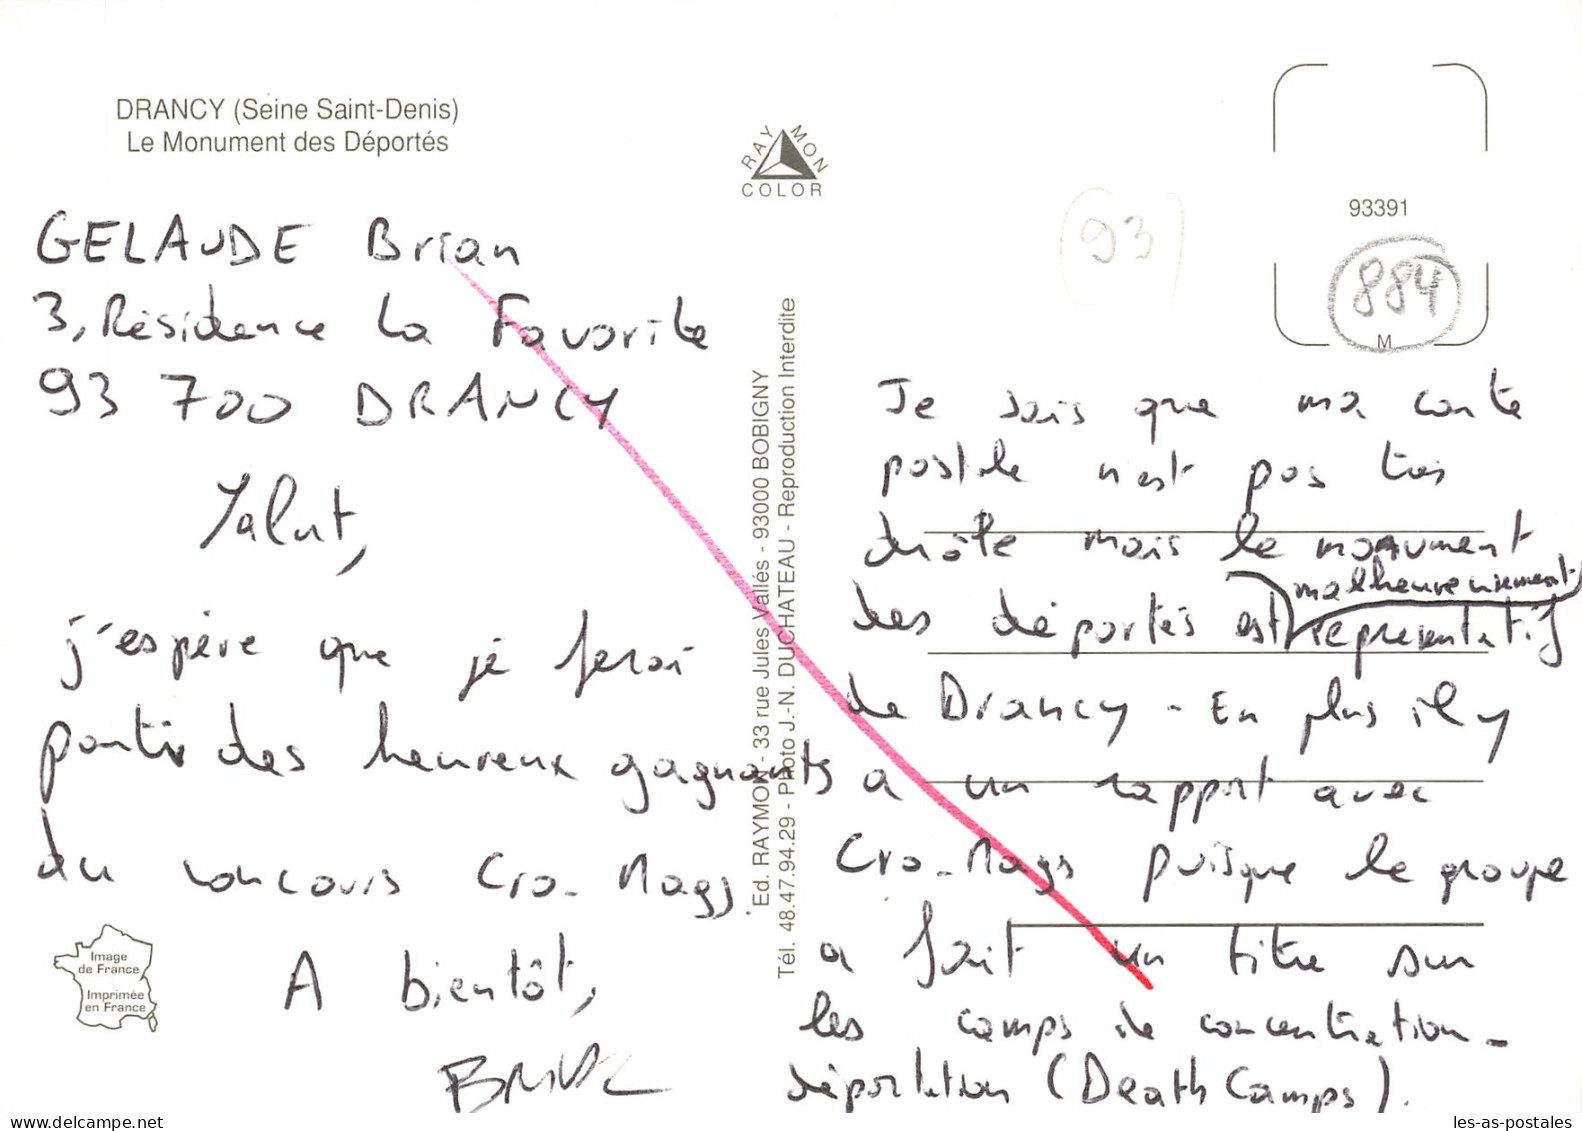 DRANCY (Seine Saint-Denis)
Le Monument des Déportés
RAYMON
COLOR
93391
93
884
M
GELAUDE Brian
3, Résidence la Favorite
93 700 DRANCY
Salut,
j'espère que je ferai
partie des heureux gagnants
du concours Cro-Mags.
A bientôt,
Ed. RAYMON - 33 rue Jules Vallés - 93000 BOBIGNY
Tél. 48.47.94.29 - Photo J.-N. DUCHATEAU - Reproduction Interdite
Je sais que ma carte
postale n'est pas très
drôle mais le monument
des déportés est malheureusement représentatif
de Drancy - En plus il y
a un rapport avec
Cro-Mags puisque le groupe
a fait un titre sur
les camps de concentration -
déportation (Death Camps).
Image
de France
Imprimée
en France
les-as-postales